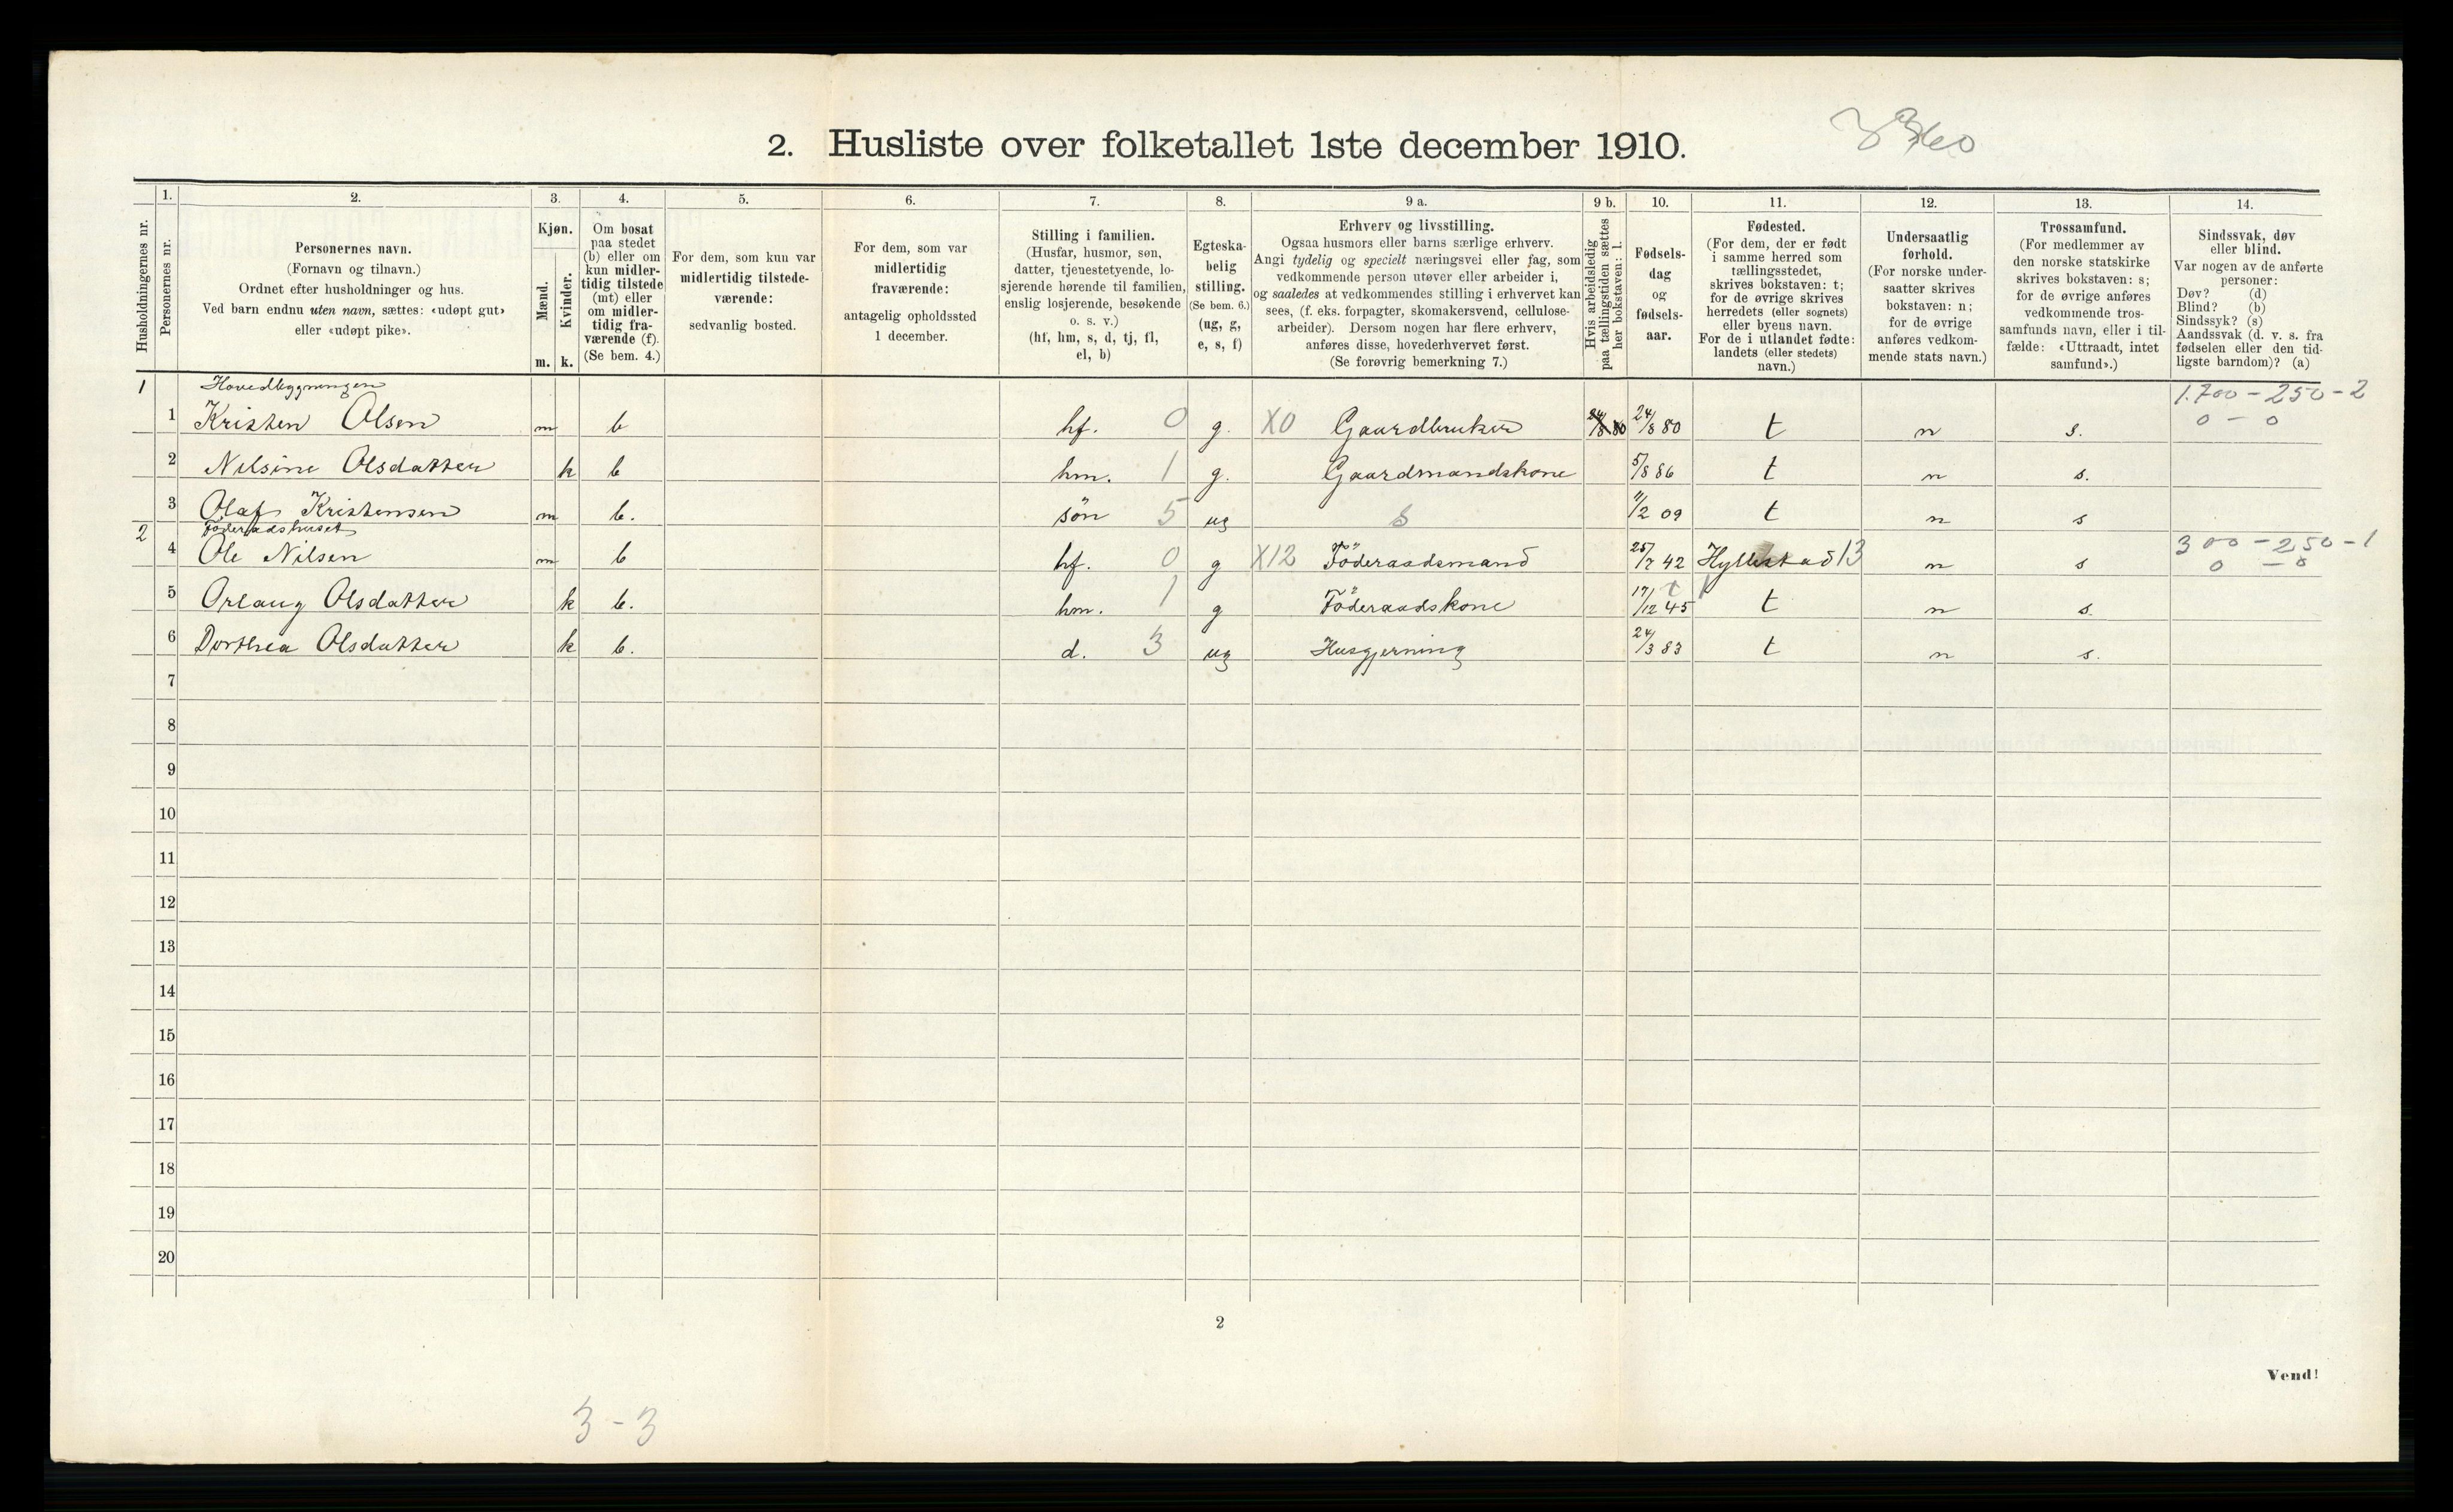 2. Husliste over folketallet 1ste december 1910.
Husholdningernes nr.
1.
Personernes nr.
2.
Personernes navn.
(Fornavn og tilnavn.)
Ordnet efter husholdninger og hus.
Ved barn endnu uten navn, sættes: «udøpt gut»
eller «udøpt pike».
3.
Kjøn.
Mænd.
Kvinder.
m. k.
4.
Om bosat
paa stedet
(b) eller om
kun midler-
tidig tilstede
(mt) eller
om midler-
tidig fra-
værende (f).
(Se bem. 4.)
5.
For dem, som kun var
midlertidig tilstede-
værende:
sedvanlig bosted.
6.
For dem, som var
midlertidig
fraværende:
antagelig opholdssted
1 december.
7.
Stilling i familien.
(Husfar, husmor, søn,
datter, tjenestetyende, lo-
sjerende hørende til familien,
enslig losjerende, besøkende
o. s. v.)
(hf, hm, s, d, tj, fl,
el, b)
8.
Egteska-
belig
stilling.
(Se bem. 6.)
(ug, g,
e, s, f)
9 a.
Erhverv og livsstilling.
Ogsaa husmors eller barns særlige erhverv.
Angi tydelig og specielt næringsvei eller fag, som
vedkommende person utøver eller arbeider i,
og saaledes at vedkommendes stilling i erhvervet kan
sees, (f. eks. forpagter, skomakersvend, cellulose-
arbeider). Dersom nogen har flere erhverv,
anføres disse, hovederhvervet først.
(Se forøvrig bemerkning 7.)
9 b.
Hvis arbeidsledig
paa tællingstiden sættes
her bokstaven: l.
10.
Fødsels-
dag
og
fødsels-
aar.
11.
Fødested.
(For dem, der er født
i samme herred som
tællingsstedet,
skrives bokstaven: t;
for de øvrige skrives
herredets (eller sognets)
eller byens navn.
For de i utlandet fødte:
landets (eller stedets)
navn.)
12.
Undersaatlig
forhold.
(For norske under-
saatter skrives
bokstaven: n;
for de øvrige
anføres vedkom-
mende stats navn.)
13.
Trossamfund.
(For medlemmer av
den norske statskirke
skrives bokstaven: s;
for de øvrige anføres
vedkommende tros-
samfunds navn, eller i til-
fælde: «Uttraadt, intet
samfund».)
14.
Sindssvak, døv
eller blind.
Var nogen av de anførte
personer:
Døv? (d)
Blind? (b)
Sindssyk? (s)
Aandssvak (d. v. s. fra
fødselen eller den tid-
ligste barndom)? (a)
1 Hovedbygningen 1.700 - 250 - 2
1 Kristen Olsen m b hf. 0 g. X0 Gaardbruker 24/8 80 24/8 80 t n s. 0 - 0
2 Nilsine Olsdatter k b hm. 1 g. Gaardmandskone 5/8 86 t n s.
3 Olaf Kristensen m b. sön 5 ug s 11/2 09 t n s
2 Föderaadshuset 300 - 250 - 1
4 Ole Nilsen m b hf. 0 g X12 Föderaadsmand 25/7 42 Hyllestad 13 n s 0 - 0
5 Orlaug Olsdatter k b. hm. 1 g Föderaadskone 17/12 45 t n s.
6 Dorthea Olsdatter k b. d. 3 ug Husgjerning 24/3 83 t n s.
7
8
9
10
11
12
13
14
15
16
17
18
19
20
2
Vend!
3 - 3